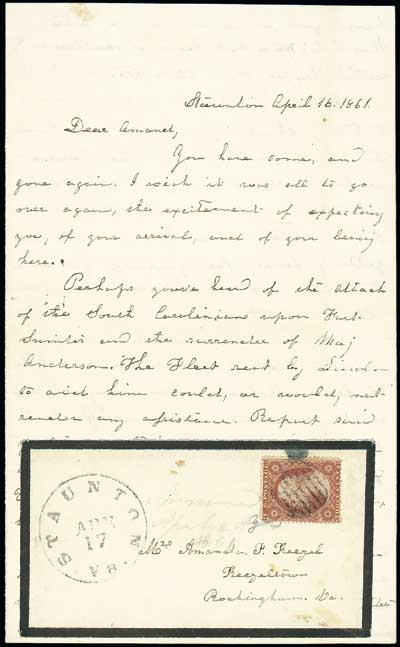 Staunton April 16. 1861.
Dear Amanda,
You have come, and
gone again. I wish it was all to go
over again, the excitement of expecting
you, of your arrival, and of your being
here.
Perhaps you've heard of the attack
of the South Carolinians upon Fort
Sumter and the surrender of Maj
Anderson. The Fleet sent by Lincoln
to aid him could, or would, not
render any assistance. Report said
STAUNTON
APR
17
VA.
Mrs Amanda F. Keezel
Keezeltown
Rockingham. Va.